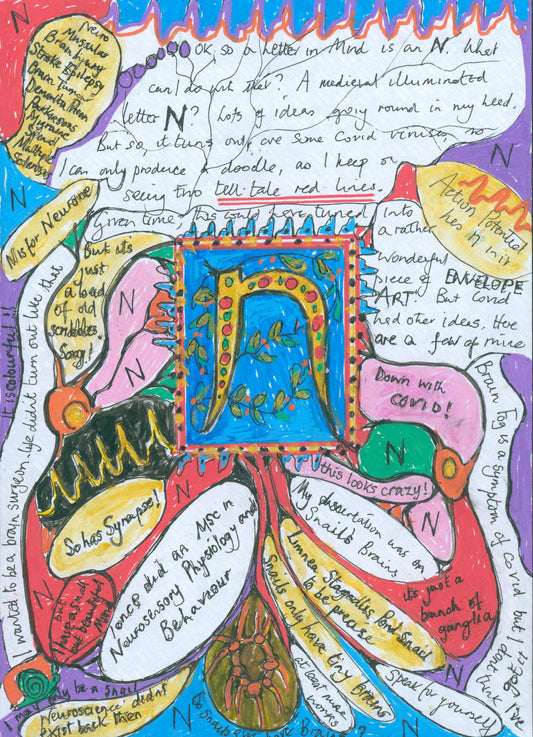 Neuro
Muscular
Brain injury
Stroke Epilepsy
Brain Tumour
Dementia
Parkinsons
Migraine
Mind
Multiple
Sclerosis
OK, so a letter in Mind is an N. What
can I do with that? A medieval illuminated
letter N? Lots of ideas going round in my head.
But so, it turns out, are some Covid viruses, so
I can only produce a doodle, as I keep on
seeing two tell-tale red lines.
Given time this could have turned into
a rather
wonderful
piece of ENVELOPE
ART. But Covid
had other ideas. Here
are a few of mine
N
N
Action Potential
N is for Neurone
But its
just
a load
of old
scribbles
Sorry!
N
N
N
It is colourful!!
I wanted to be a brain surgeon. Life didnt turn out like that
Down with
COVID!
N
this looks crazy!
N
Brain Fog is a symptom of covid but I dont think I've got it
So has Synapse!
N
I once did an MSc in
Neurosensory Physiology and
Behaviour
My dissertation was on
Snails Brains
Limnea Stagnalis, Pond Snail
to be precise
Snails only have tiny Brains
at least mine
works
its just a
bunch of
ganglia
Speak for yourself
N
but
I have a small
but beautiful
Mind
I may only be a snail
Neuroscience didnt
exist back then
N
Do Snails even have Brains?
N